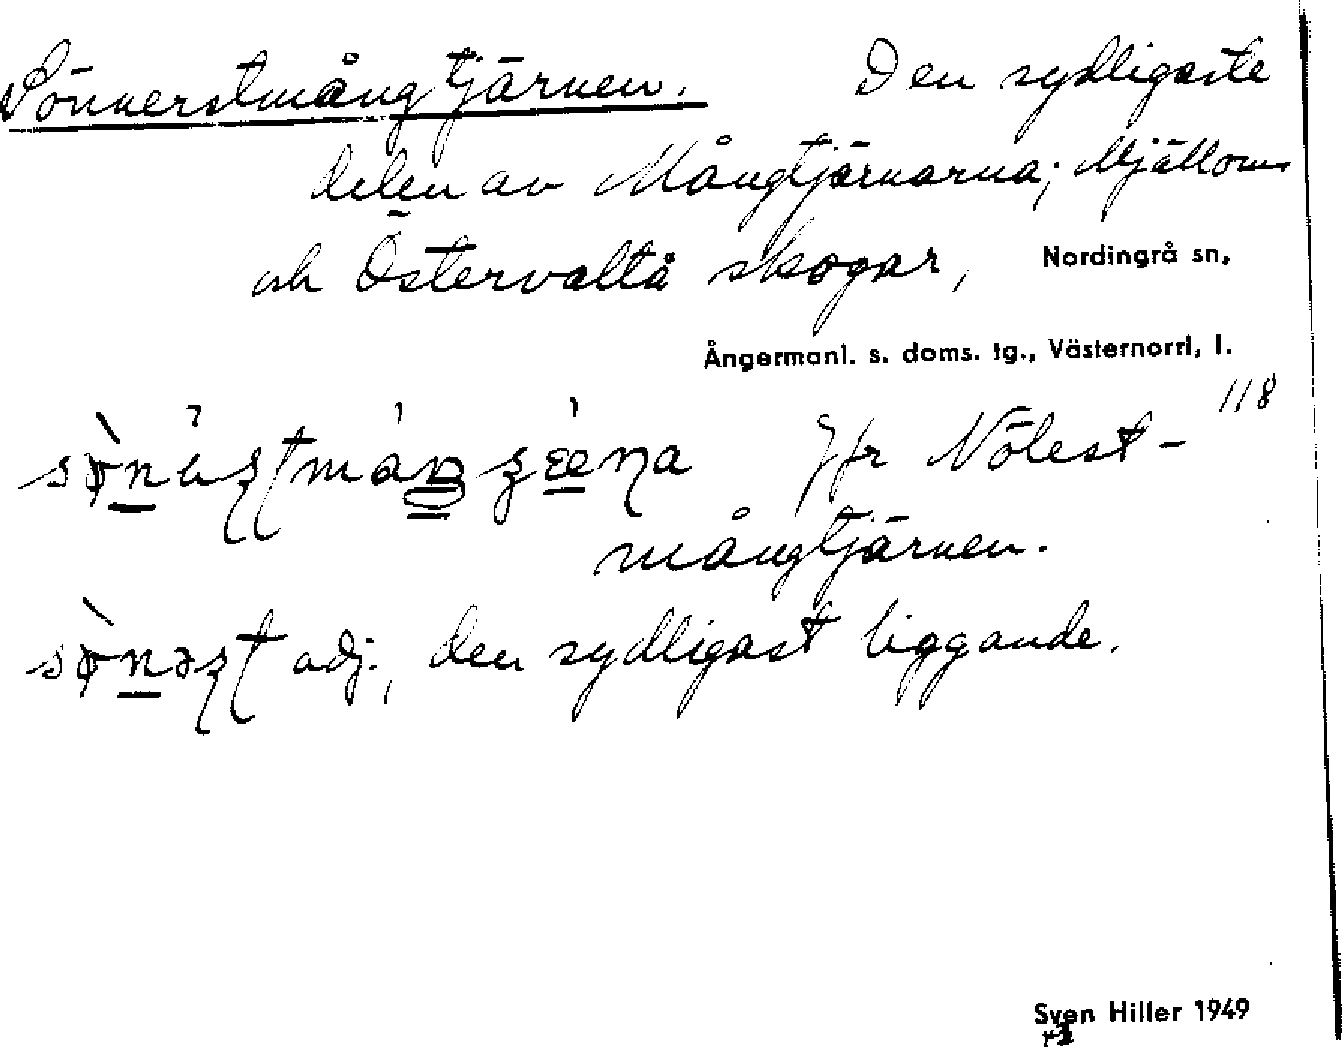 Sönnerstmångtjärnen. Den sydligaste
delen av Mångtjärnarna; Mjälloms
och Östervaltå skogar, Nordingrå sn,
Ångermanl. s. doms. tg., Västernorrl, l.
118
Jfr Nölest-
mångtjärnen.
adj., den sydligast liggande.
Sven Hiller 1949